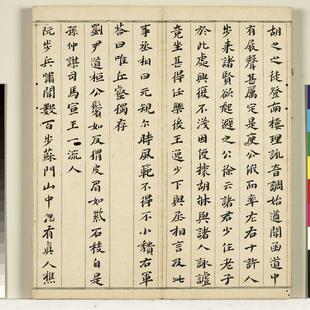 胡之之徒登南樓理詠音調始遒聞函道中
有屐聲甚厲定是庾公俄而率左右十許人
步來諸賢欲起避之公徐云諸君少住老子
於此處興復不淺因便據胡牀與諸人詠謔
竟坐甚得任樂後王逸少下與丞相言及此
事丞相曰元規尒時風範不得不小穨右軍
答曰唯丘壑獨存
劉尹道桓公鬢如反猬皮眉如紫石稜自是
孫仲謀司馬宣王一流人
阮步兵嘯聞數百步蘇門山中忽有真人樵